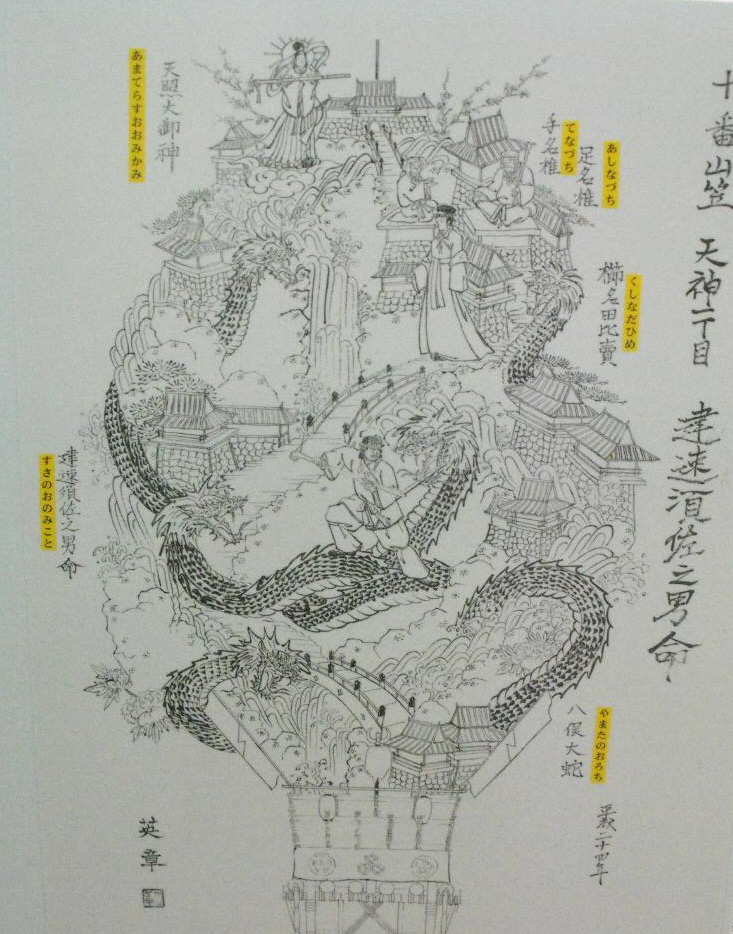 十番山笠 天神一丁目 建速須佐之男命
あしなづち
足名椎
てなづち
手名椎
天照大御神
あまてらすおおみかみ
くしなだひめ
櫛名田比賣
建速須佐之男命
すさのおのみこと
やまたのおろち
八俣大蛇
平成二十四年
英章